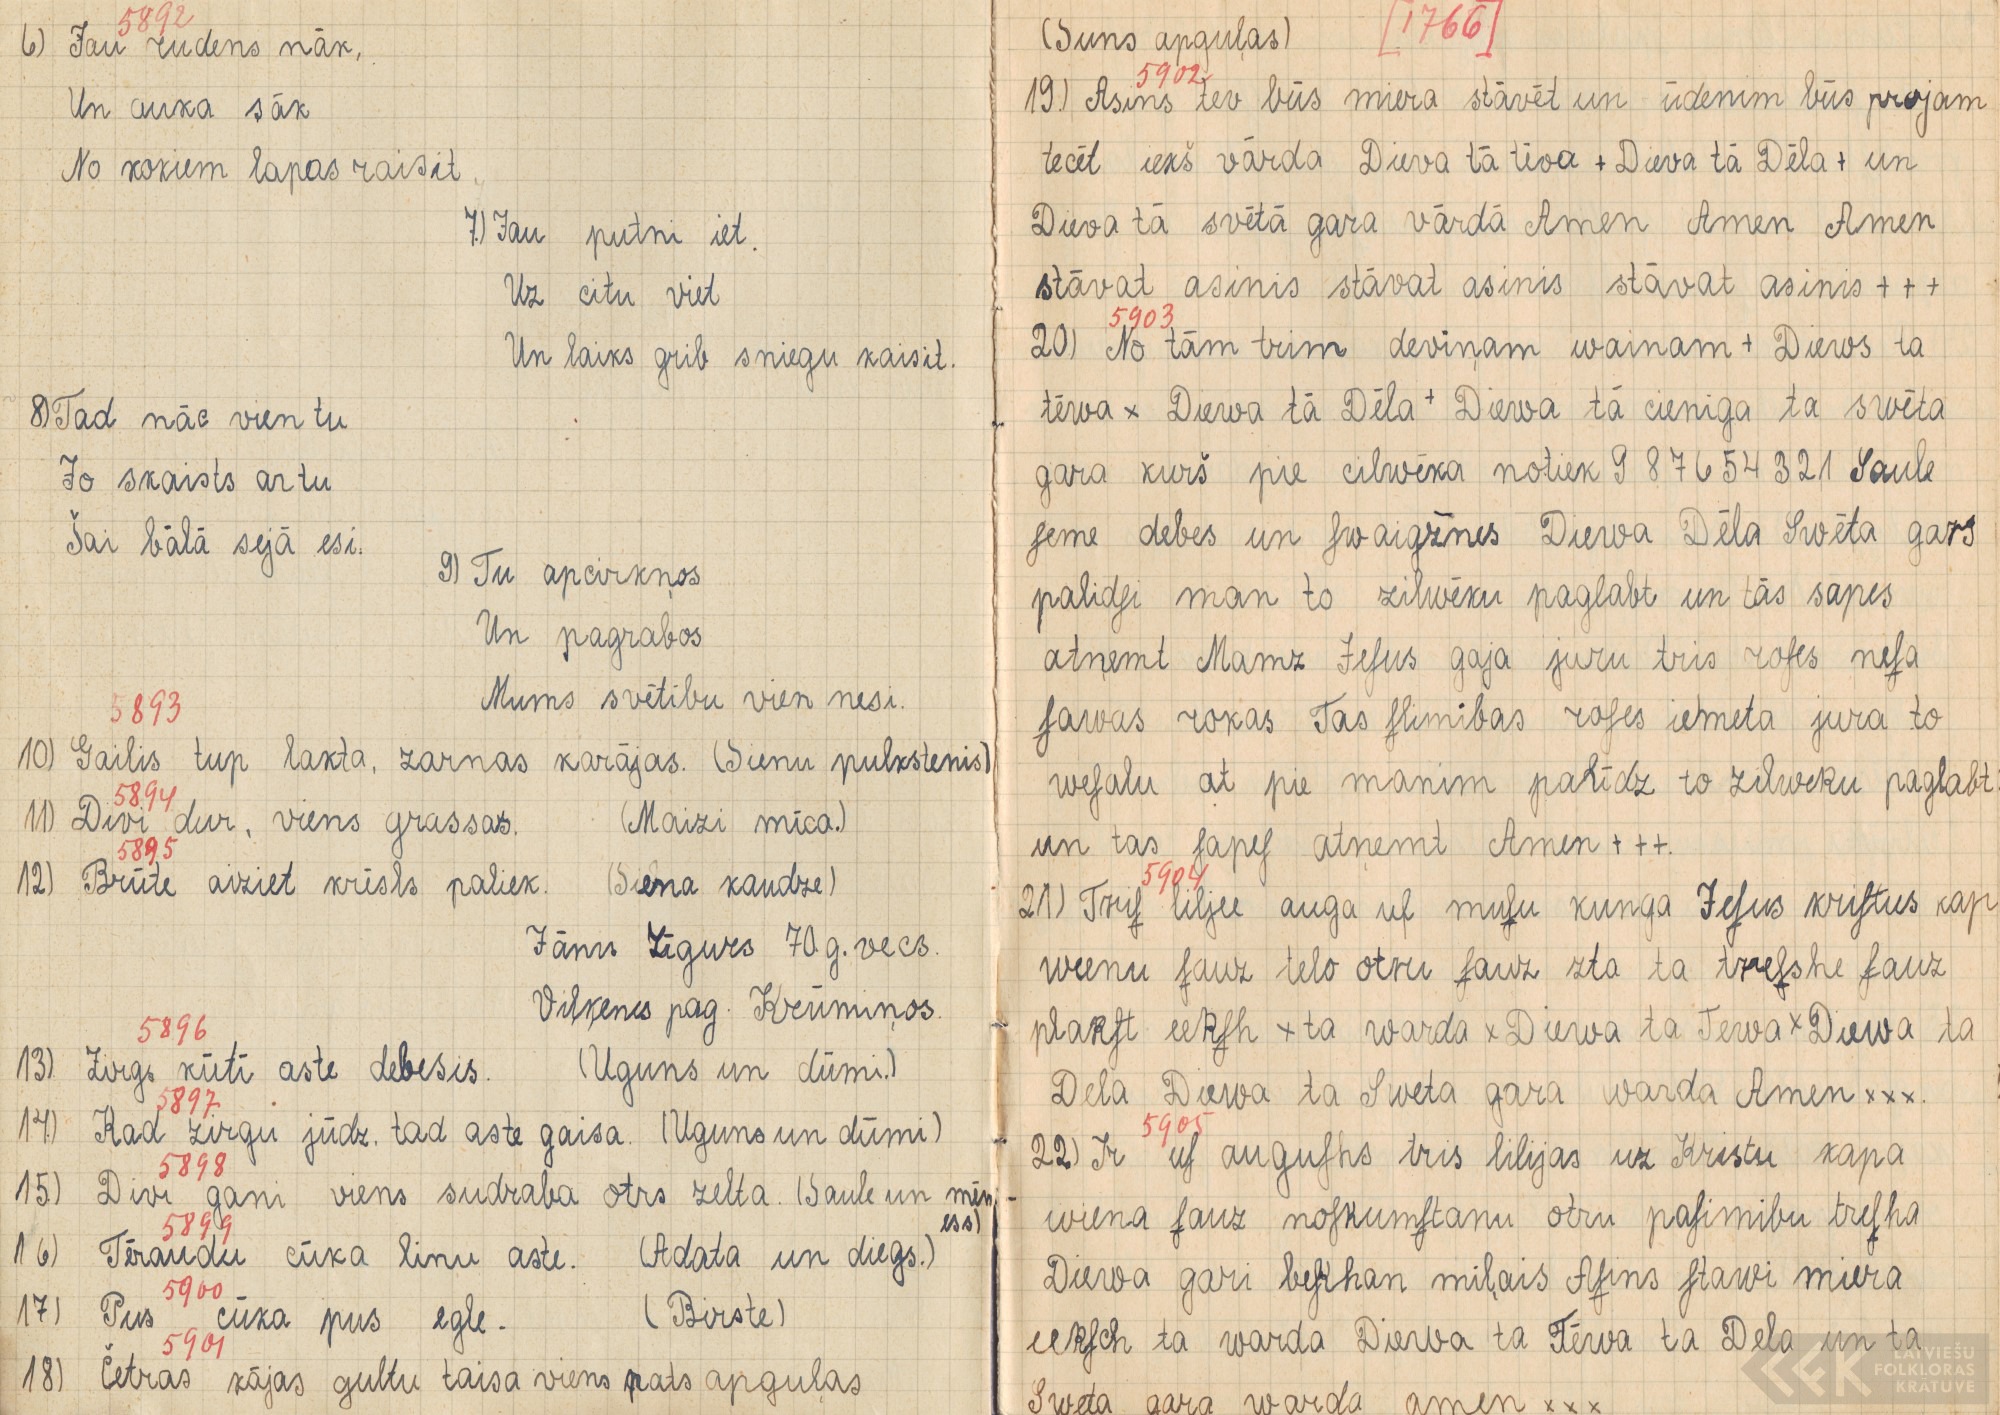 5892
6) Jau rudens nāk,
Un auka sāk
No kokiem lapas raisit.
7.) Jau putni iet.
Uz citu viet
Un laiks grib sniegu kaisit.
8) Tad nāc vien tu
Jo skaists ar tu
Šai bālā sejā esi.
9) Tu apcirkņos
Un pagrabos
Mums svētību vien nesi.
5893
10) Gailis tup lakta, zarnas karājas. (Sienu pulkstenis)
5894
11) Divi dur, viens grassas. (Maizi mīca.)
5895
12) Brūte aiziet krēsls paliek. (Siena kaudze)
Jānis Zīgurs 70.g. vecs.
Vilkenes pag. Krūmiņos.
5896
13) Zirgs kūtī aste debesis. (Uguns un dūmi.)
5897
14) Kad zirgu jūdz, tad aste gaisa. (Uguns un dūmi)
5898
15.) Divi gani viens sudraba otrs zelta. (Saule un mēn-
ess)
5899
16) Tēraudu cūka linu aste. (Adata un diegs.)
5900
17) Pus cūka pus egle. (Birste)
5901
18) Četras kājas gultu taisa viens pats apguļas
(Suns apguļas) [1766]
5902
19.) Asins tev būs miera stāvēt un ūdenim būs projam
tecēt iekš vārda Dieva tā tēva + Dieva tā Dēla + un
Dieva tā svētā gara vārdā Amen Amen Amen
stāvat asinis stāvat asinis stāvat asinis + + +
5903
20) No tām trim deviņam wainam + Diews ta
tēwa x Diewa tā Dēla + Diewa tā cieniga ta swēta
gara kurš pie cilwēka notiek 9 8 7 6 5 4 3 2 1 Saule
ſeme debes un ſwaigžnes Diewa Dēla Swēta gars
palidſi man to zilwēku paglabt un tās sāpes
atņemt Mamz Jeſus gaja juru tris roſes neſa
ſawas rokas Tas ſlimibas roſes iemeta jura to
weſalu at pie manim palīdz to zilweku paglabt
un tas ſapeſ atņemt Amen + + +.
5904
21) Triſ liljee auga uſ muſu kunga Jeſus kriſtus kap
weenu ſauz telo otru ſauz zta ta treſshe ſauz
plakſt eekſh x ta warda x Diewa ta Tewa x Diewa ta
Dela Diewa ta Sweta gara warda Amen x x x.
5905
22) Ir uſ auguſhs tris lilijas uz Kristu kapa
wiena ſauz noſkumſtanu otru paſimibu treſha
Diewa gari beſkhan miļais Aſins ſtawi miera
eekſch ta warda Diewa ta Tēwa ta Dela un ta
Sweta gara warda amen x x x
LATVIEŠU
FOLKLORAS
KRĀTUVE